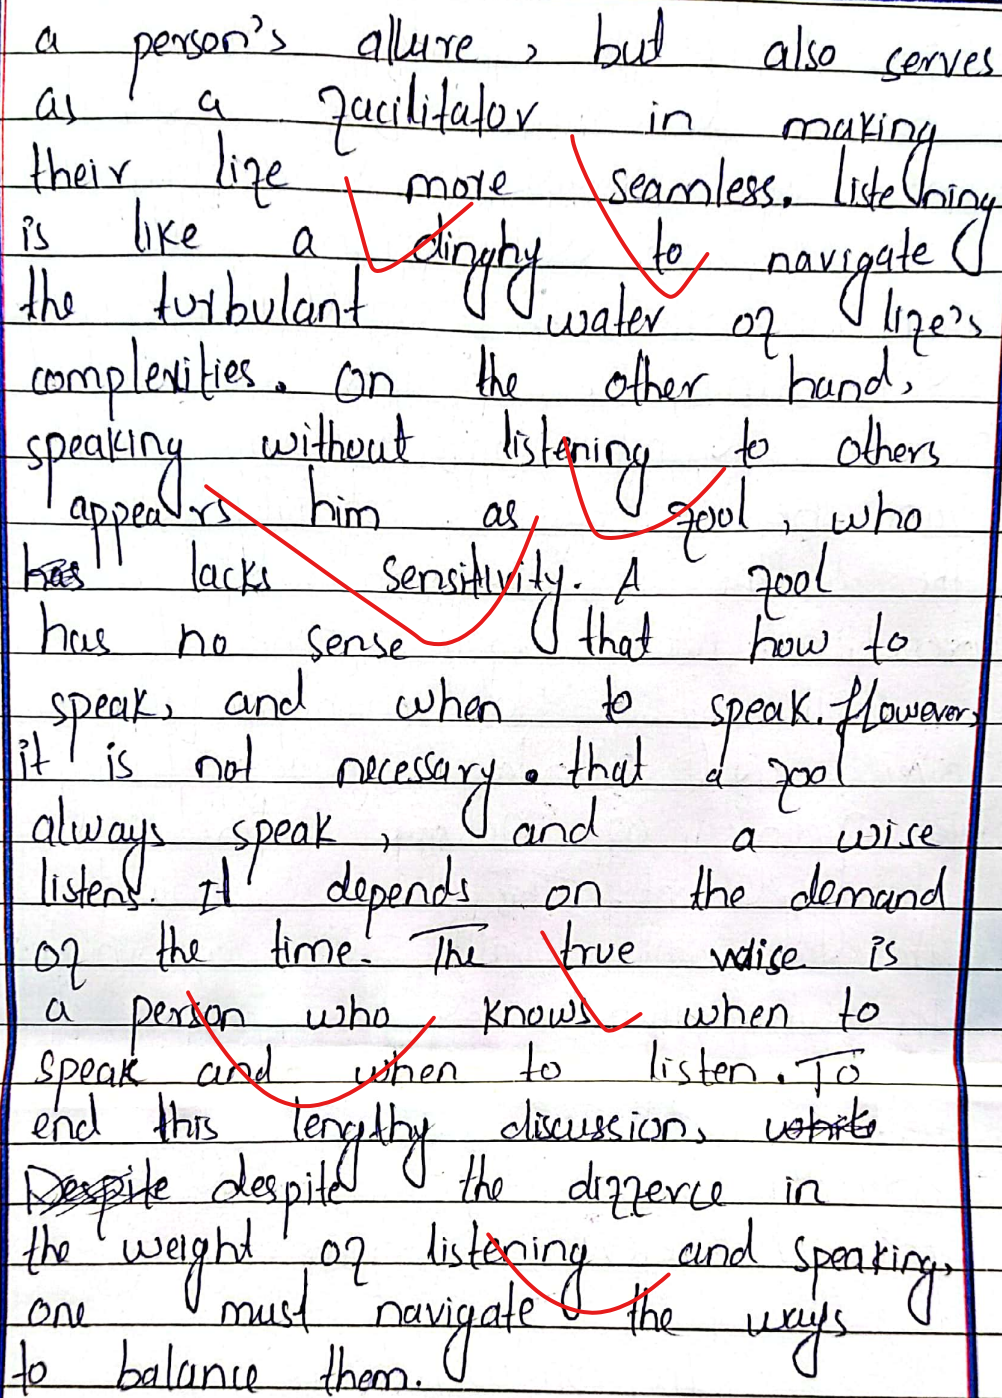 a person's allure, but also serves
as a facilitator in making
their life more seamless. listening
is like a dinghy to navigate
the turbulant water of life's
complexities. On the other hand,
speaking without listening to others
appears him as fool, who
has lacks sensitivity. A fool
has no sense that how to
speak, and when to speak. However,
it is not necessary. that a fool
always speak, and a wise
listens. It depends on the demand
of the time. The true wise is
a person who knows when to
speak and when to listen. To
end this lengthy discussion,
Despite despite the differce in
the weight of listening and speaking,
one must navigate the ways
to balance them.